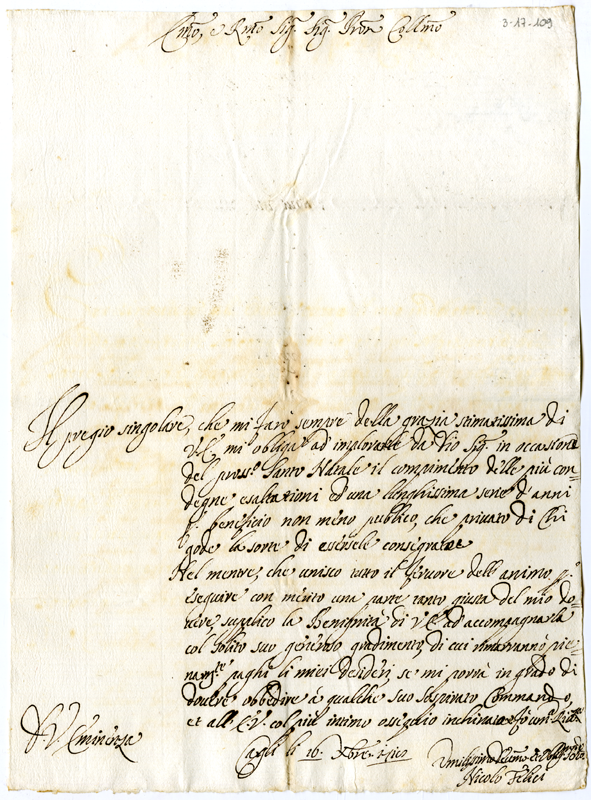 3-17-109
Em͂o, e Rm͂o Sig. Sig. Pron͂ Collm͂o
Il pregio singolare, che mi farò sempre della grazia stimatissima di
V.E. mi obliga ad implorarle da Dio Sig. in occasione
del pross.o Santo Natale il compimento delle più con=
degne esaltazioni ed una lunghissima serie d'anni
p. beneficio non meno publico, che privato di chi
gode la sorte di essersele consigrato
Nel mentre, che unisco tutto il fervore dell'animo p.
eseguire con merito una parte tanto giusta del mio do=
vere, supplico la Benignità di V.E. ad accompagnarla
col solito suo generoso gradimento, di cui rimarranno pie=
nam.te paghi li miei desiderj se mi porrà in grado di
dovere obbedire à qualche suo sospirato Commando,
et all'E.V. col più intimo ossequio
S. V. Eminenza
Cagli li 16. Xbre
Umilissimo
Nicolò Felici